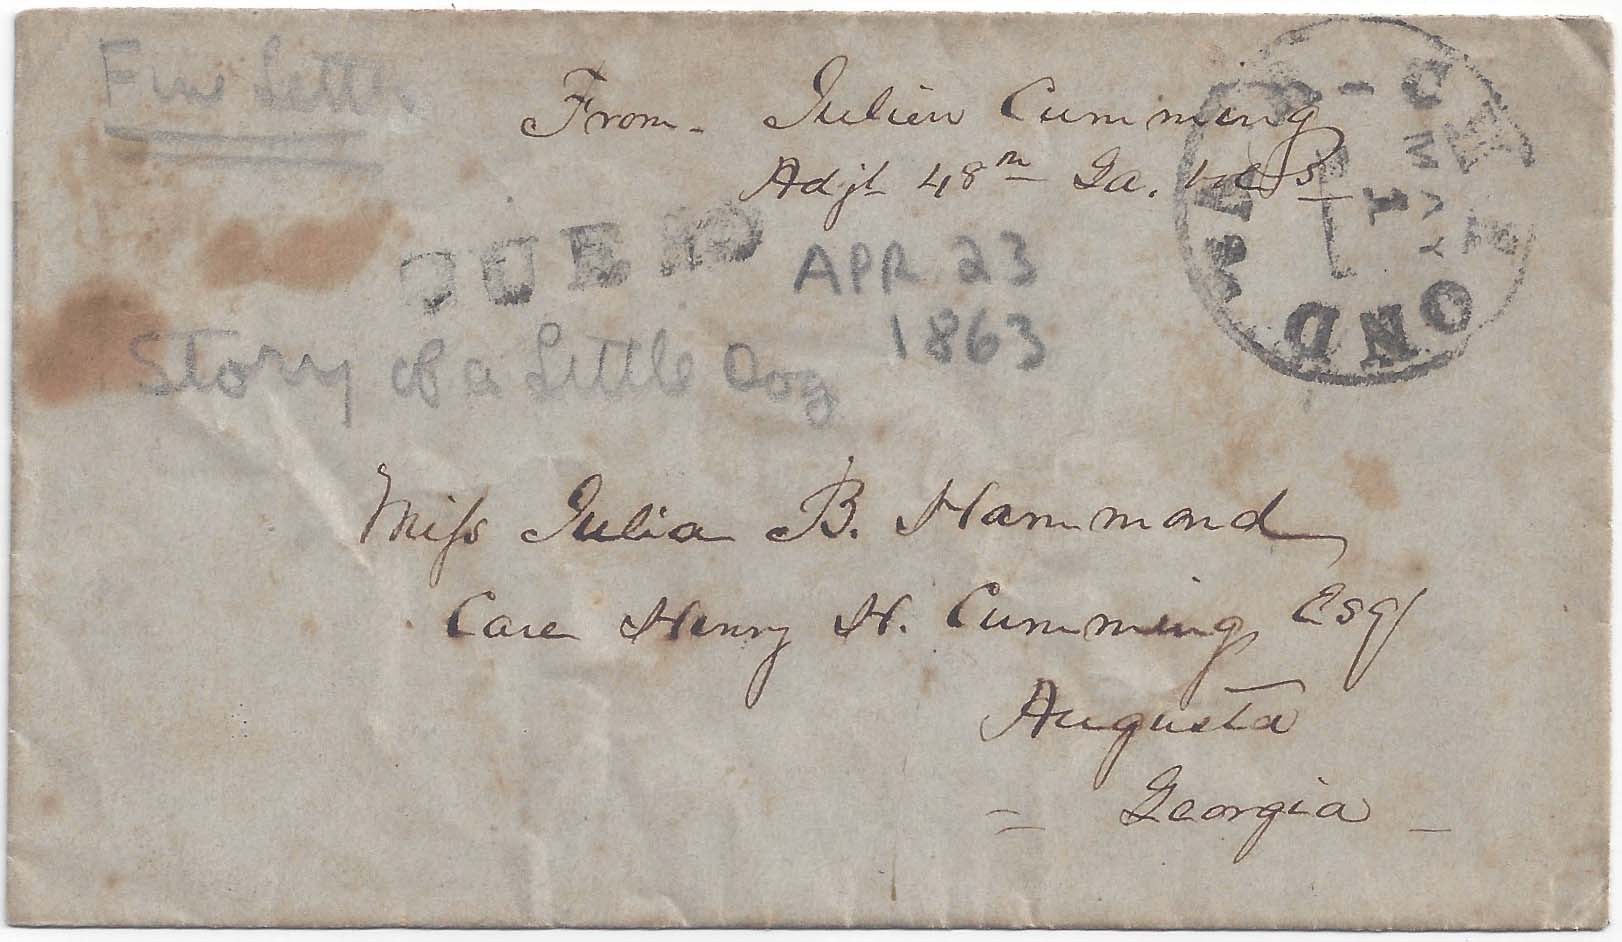 Fine Letter
From - Julien Cumming
Adjt 48th Ga. Vols
DUE 10
APR 23
1863
Story of a Little Dog
RICHMOND VA
MAY
1
Miss Julia B. Hammond
Care Henry H. Cumming Esq
Augusta
= Georgia -